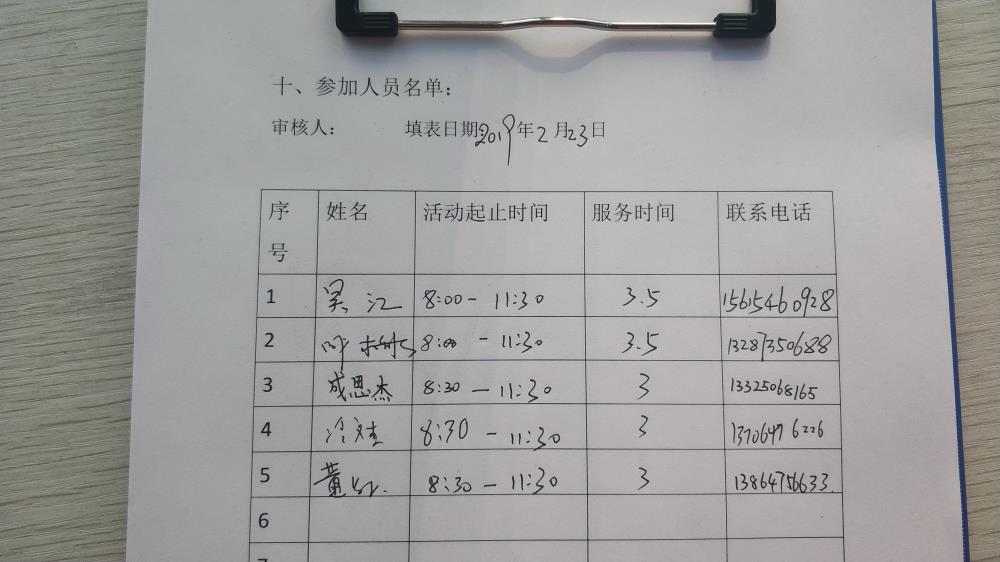 十、参加人员名单：
审核人： 填表日期2019年2月23日
序号 姓名 活动起止时间 服务时间 联系电话
1 吴江 8:00-11:30 3.5 15615460928
2 8:00-11:30 3.5 13287350688
3 成思杰 8:30-11:30 3 13325068165
4 冷 8:30-11:30 3
5 黄 8:30-11:30 3 13864756633
6